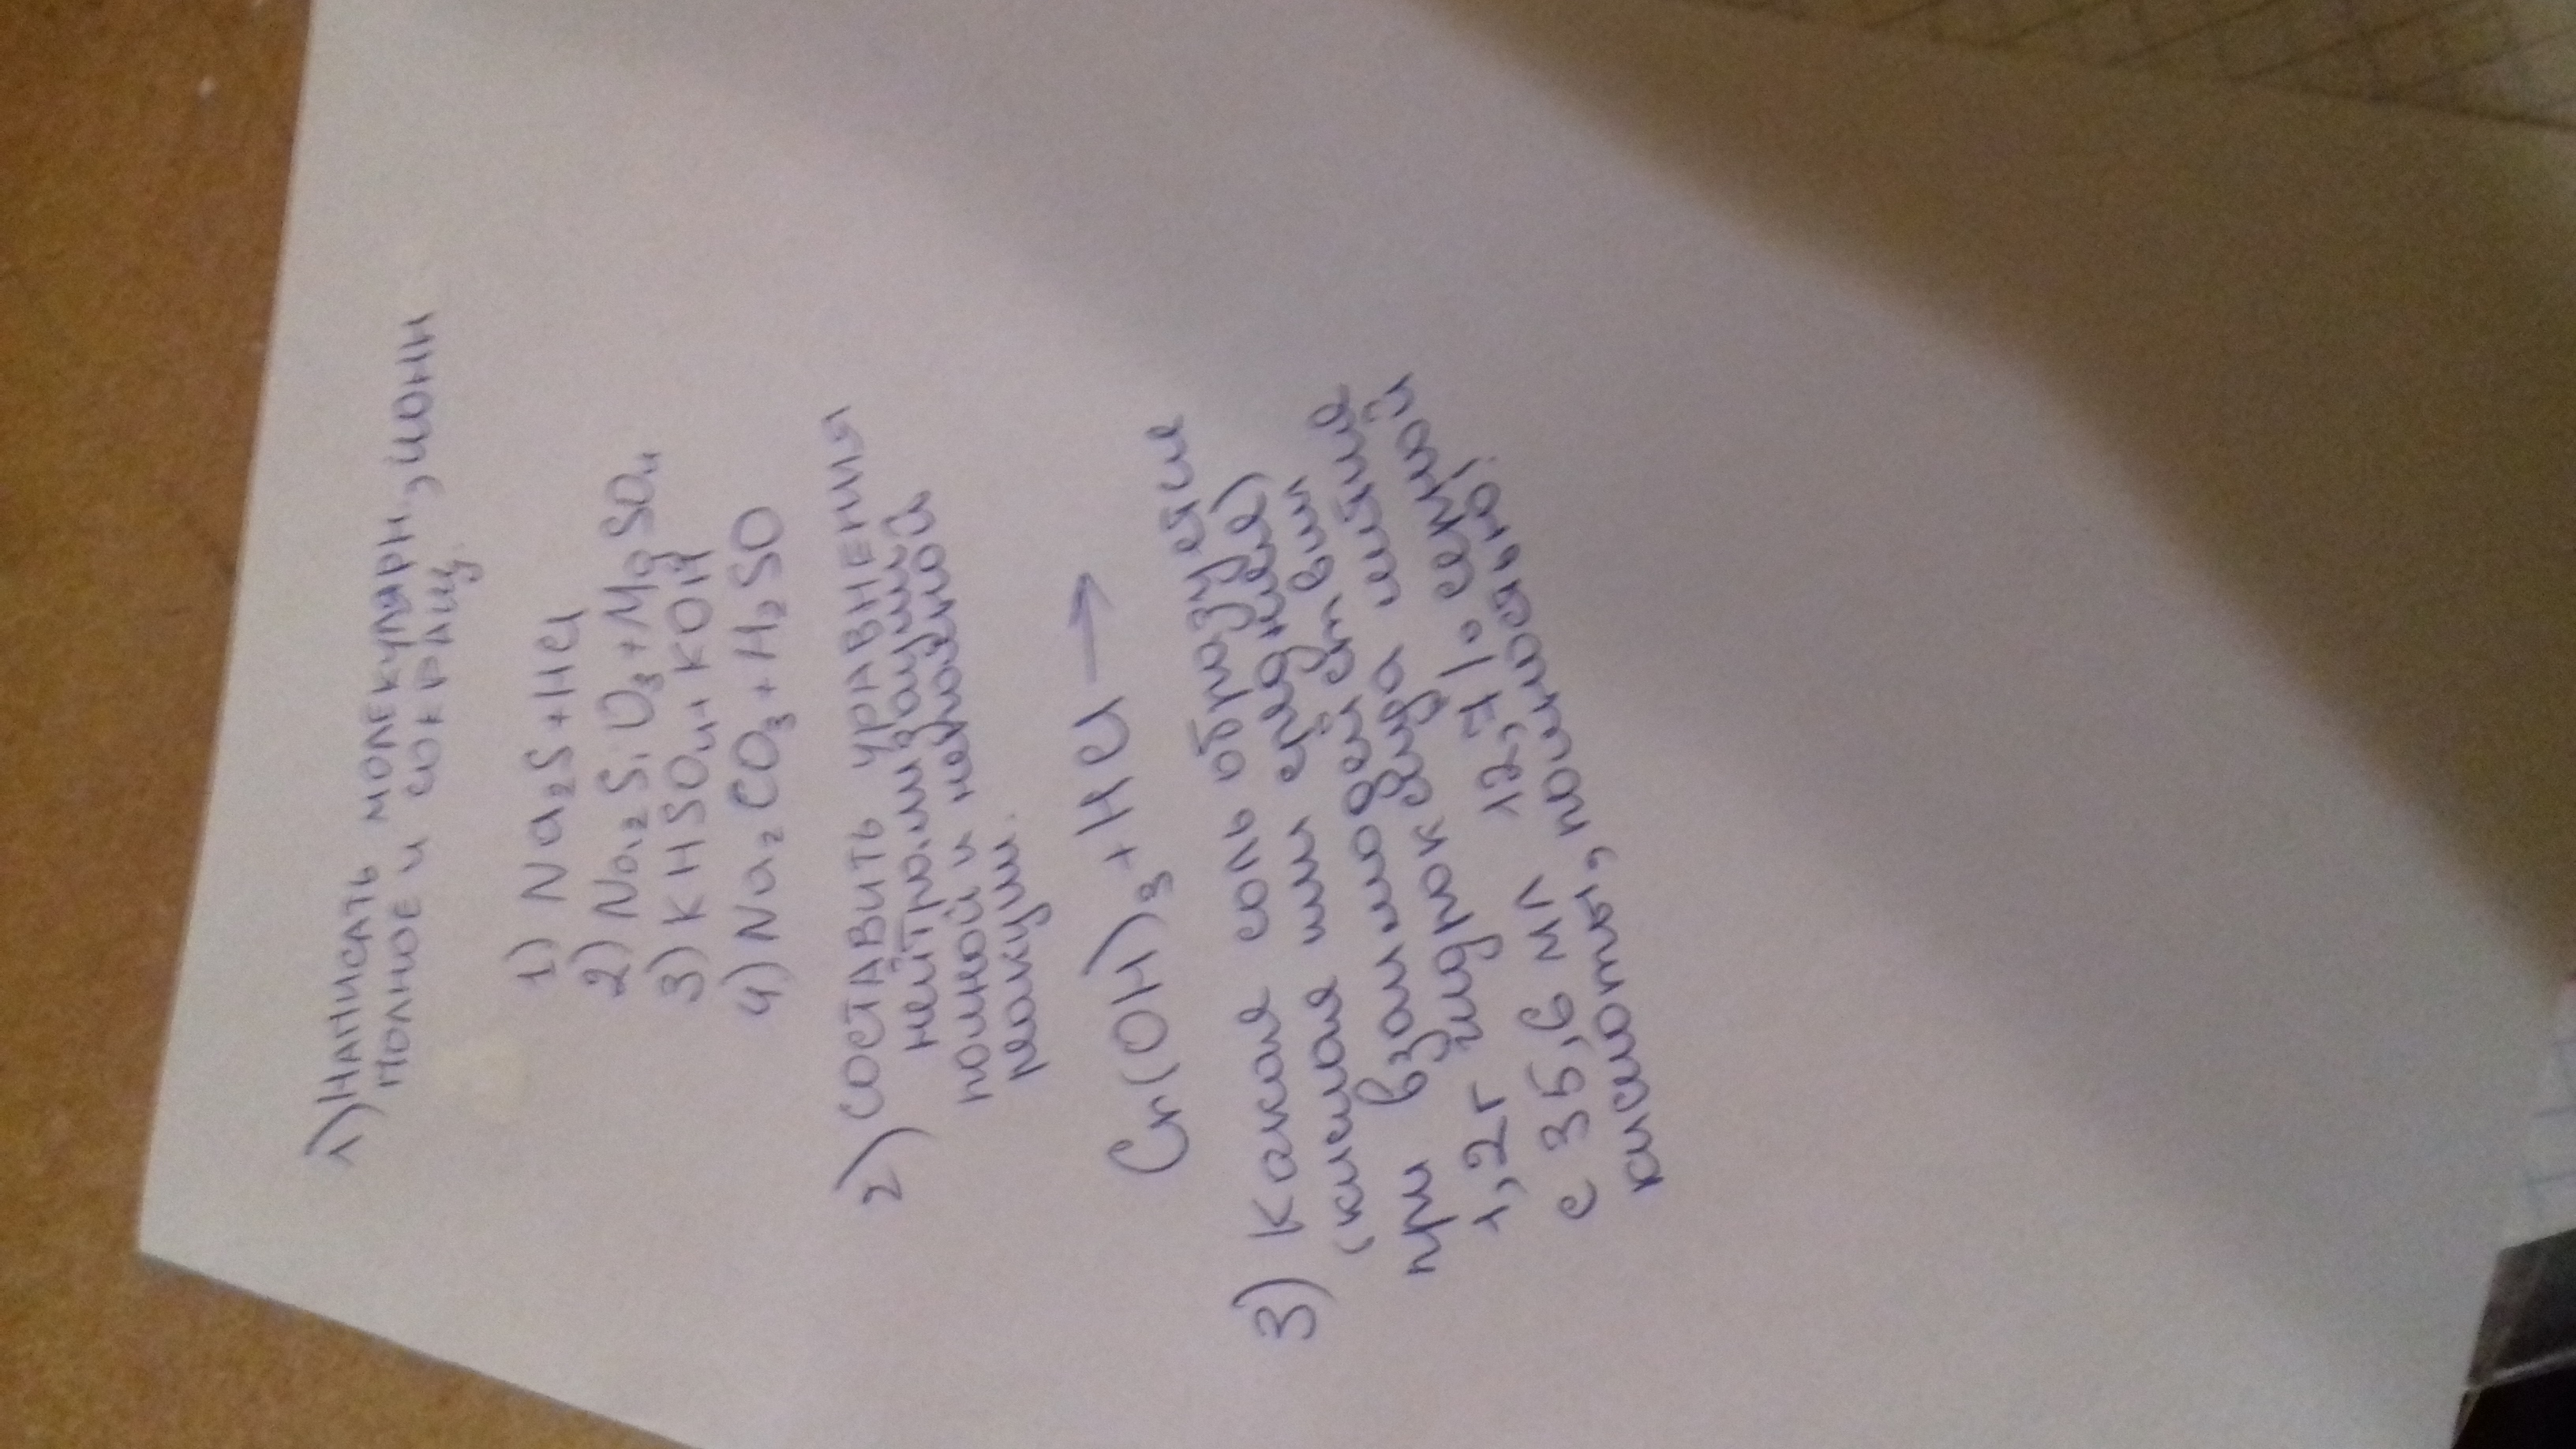 1) НАПИСАТЬ МОЛЕКУЛЯРН, ИОНН
ПОЛНОЕ И СОКРАЩ.
1) Na₂S + HCl
2) Na₂SiO₃ + MgSO₄
3) KHSO₄ + KOH
4) Na₂CO₃ + H₂SO
2) СОСТАВИТЬ УРАВНЕНИЯ
нейтрализации
полной и неполной
реакции.
Cr(OH)₃ + HCl →
3) Какая соль образуется
(кислая или средняя)
при взаимодействии
1,2г гидроксида лития
с 35,6 мл 12,7% серной
кислоты, полностью?